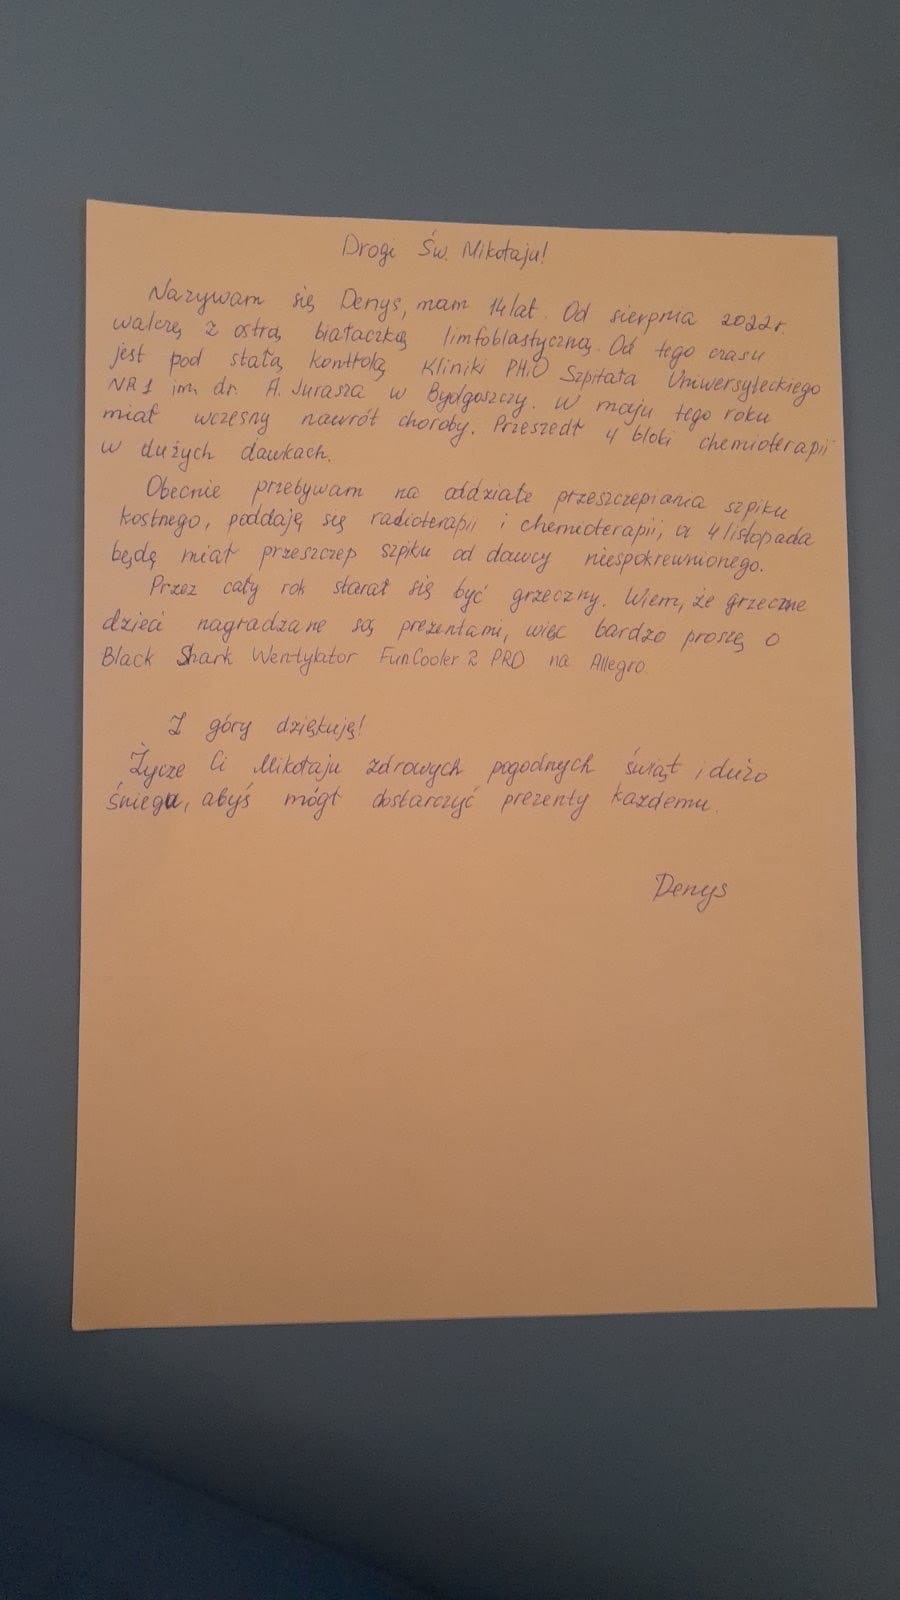 Drogi Św. Mikołaju!
Nazywam się Denys, mam 14 lat. Od sierpnia 2022r.
walczę z ostrą białaczką limfoblastyczną. Od tego czasu
jest pod stałą kontrolą Kliniki PHiO Szpitala Uniwersyteckiego
NR 1 im. dr. A. Jurasza w Bydgoszczy. W maju tego roku
miał wczesny nawrót choroby. Przeszedł 4 bloki chemioterapii
w dużych dawkach.
Obecnie przebywam na oddziale przeszczepiania szpiku
kostnego, poddaję się radioterapii i chemioterapii, a 4 listopada
będę miał przeszczep szpiku od dawcy niespokrewnionego.
Przez cały rok starał się być grzeczny. Wiem, że grzeczne
dzieci nagradzane są prezentami, więc bardzo proszę o
Black Shark Wentylator FunCooler 2 PRO na Allegro.
Z góry dziękuję!
Życzę Ci Mikołaju zdrowych pogodnych świąt i dużo
śniegu, abyś mógł dostarczyć prezenty każdemu.
Denys